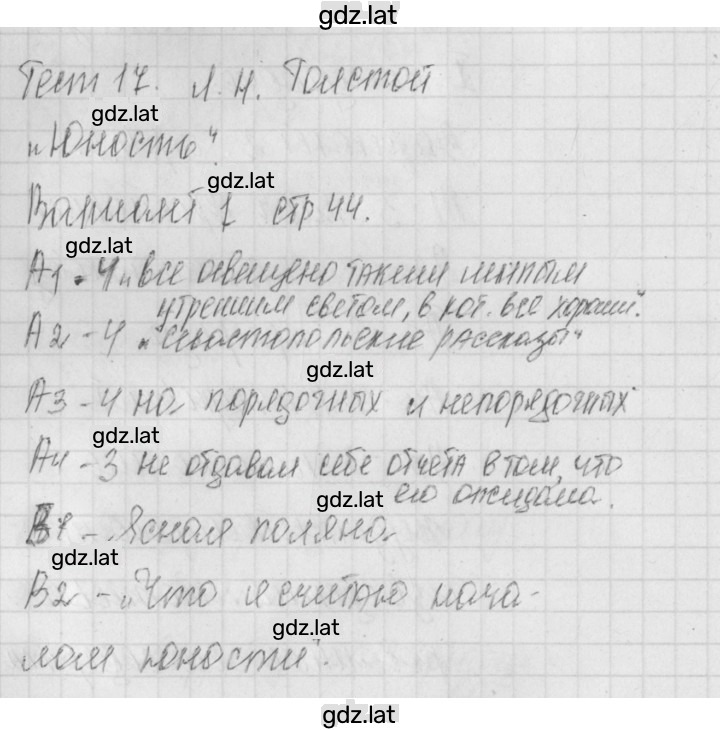 gdz.lat
Тест 17. Л. Н. Толстой
gdz.lat
"Юность".
gdz.lat
Вариант 1 стр 44.
gdz.lat
А1 - 4 "все освещено таким
утренним светом, в кот. все хороши".
А2 - 4 "Севастопольские рассказы"
gdz.lat
А3 - 4 на порядочных и непорядочных
gdz.lat
А4 - 3 не отдавал себе отчета в том, что
gdz.lat
его ожидала.
В1 - Ясная поляна
gdz.lat
В2 - "Что я считаю нача-
gdz.lat
лом юности".
gdz.lat